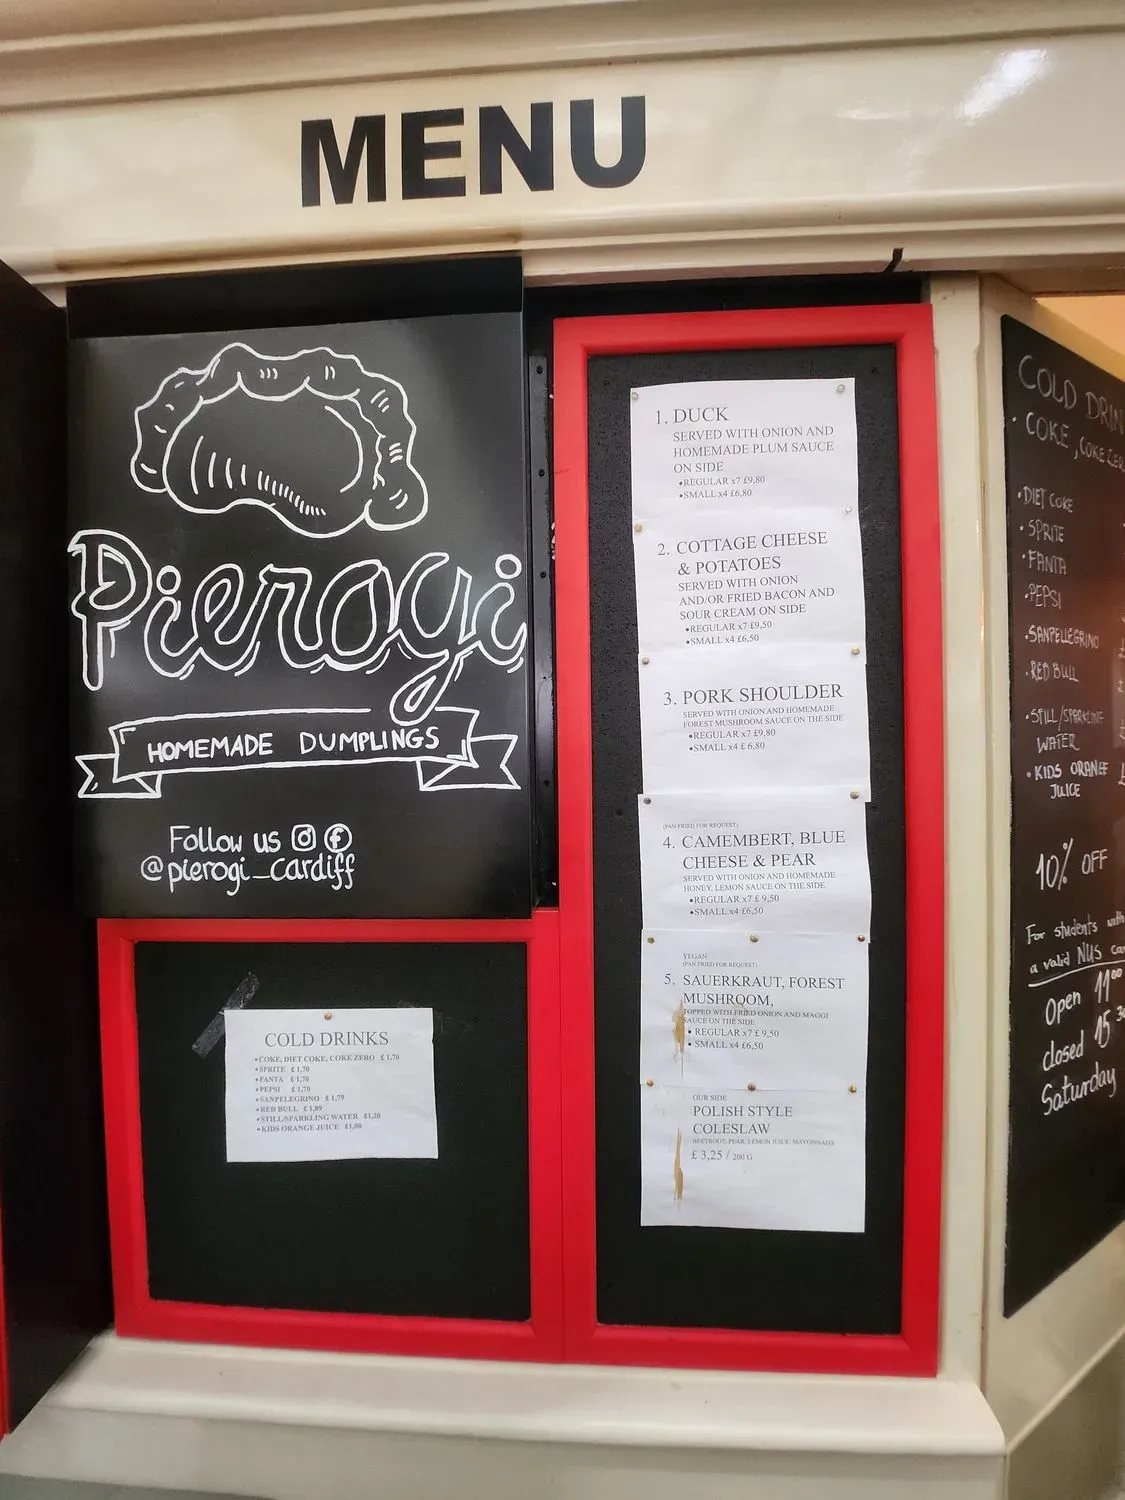 MENU
Pierogi
HOMEMADE DUMPLINGS
Follow us
@pierogi_cardiff
COLD DRINKS
•COKE, DIET COKE, COKE ZERO £ 1,70
•SPRITE £ 1,70
•FANTA £ 1,70
•PEPSI £ 1,70
•SANPELEGRINO £ 1,79
•RED BULL £ 1,89
•STILL/SPARKLING WATER £1,20
•KIDS ORANGE JUICE £1,00
1. DUCK
SERVED WITH ONION AND
HOMEMADE PLUM SAUCE
ON SIDE
•REGULAR x7 £9,80
•SMALL x4 £6,80
2. COTTAGE CHEESE
& POTATOES
SERVED WITH ONION
AND/OR FRIED BACON AND
SOUR CREAM ON SIDE
•REGULAR x7 £9,50
•SMALL x4 £6,50
3. PORK SHOULDER
SERVED WITH ONION AND HOMEMADE
FOREST MUSHROOM SAUCE ON THE SIDE
•REGULAR x7 £9,80
•SMALL x4 £ 6,80
(PAN FRIED FOR REQUEST)
4. CAMEMBERT, BLUE
CHEESE & PEAR
SERVED WITH ONION AND HOMEMADE
HONEY, LEMON SAUCE ON THE SIDE
•REGULAR x7 £ 9,50
•SMALL x4 £6,50
VEGAN
(PAN FRIED FOR REQUEST)
5. SAUERKRAUT, FOREST
MUSHROOM,
TOPPED WITH FRIED ONION AND MAGGI
SAUCE ON THE SIDE
• REGULAR x7 £ 9,50
• SMALL x4 £6,50
OUR SIDE
POLISH STYLE
COLESLAW
BEETROOT, PEAR, LEMON JUICE, MAYONNAISE
£ 3,25 / 200 G
COLD DRIN
• COKE, COKE ZER
•DIET COKE
• SPRITE
•FANTA
•PEPSI
•SANPELLEGRINO
•RED BULL
•STILL/SPARKLING
WATER
• KIDS ORANGE
JUICE
10% OFF
For students with
a valid NUS ca
Open 11⁰⁰
closed 15 ³
Saturday